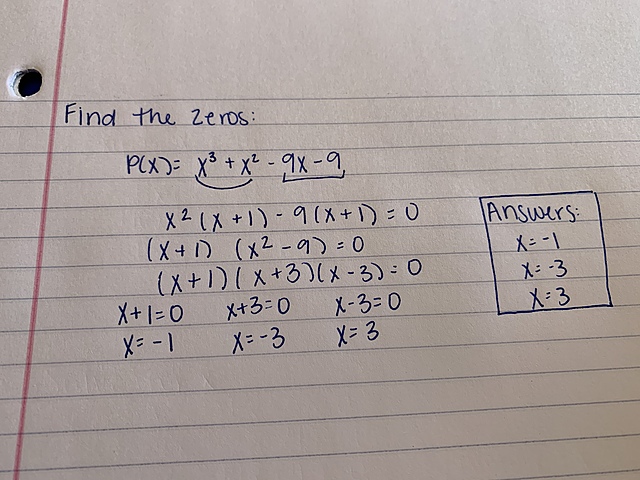 Find the zeros:
P(x)= x³ + x² - 9x - 9
x² (x + 1) - 9 (x + 1) = 0
(x + 1) (x² - 9) = 0
(x + 1)(x + 3)(x - 3) = 0
x + 1 = 0 x + 3 = 0 x - 3 = 0
x = -1 x = -3 x = 3
Answers:
x = -1
x = -3
x = 3